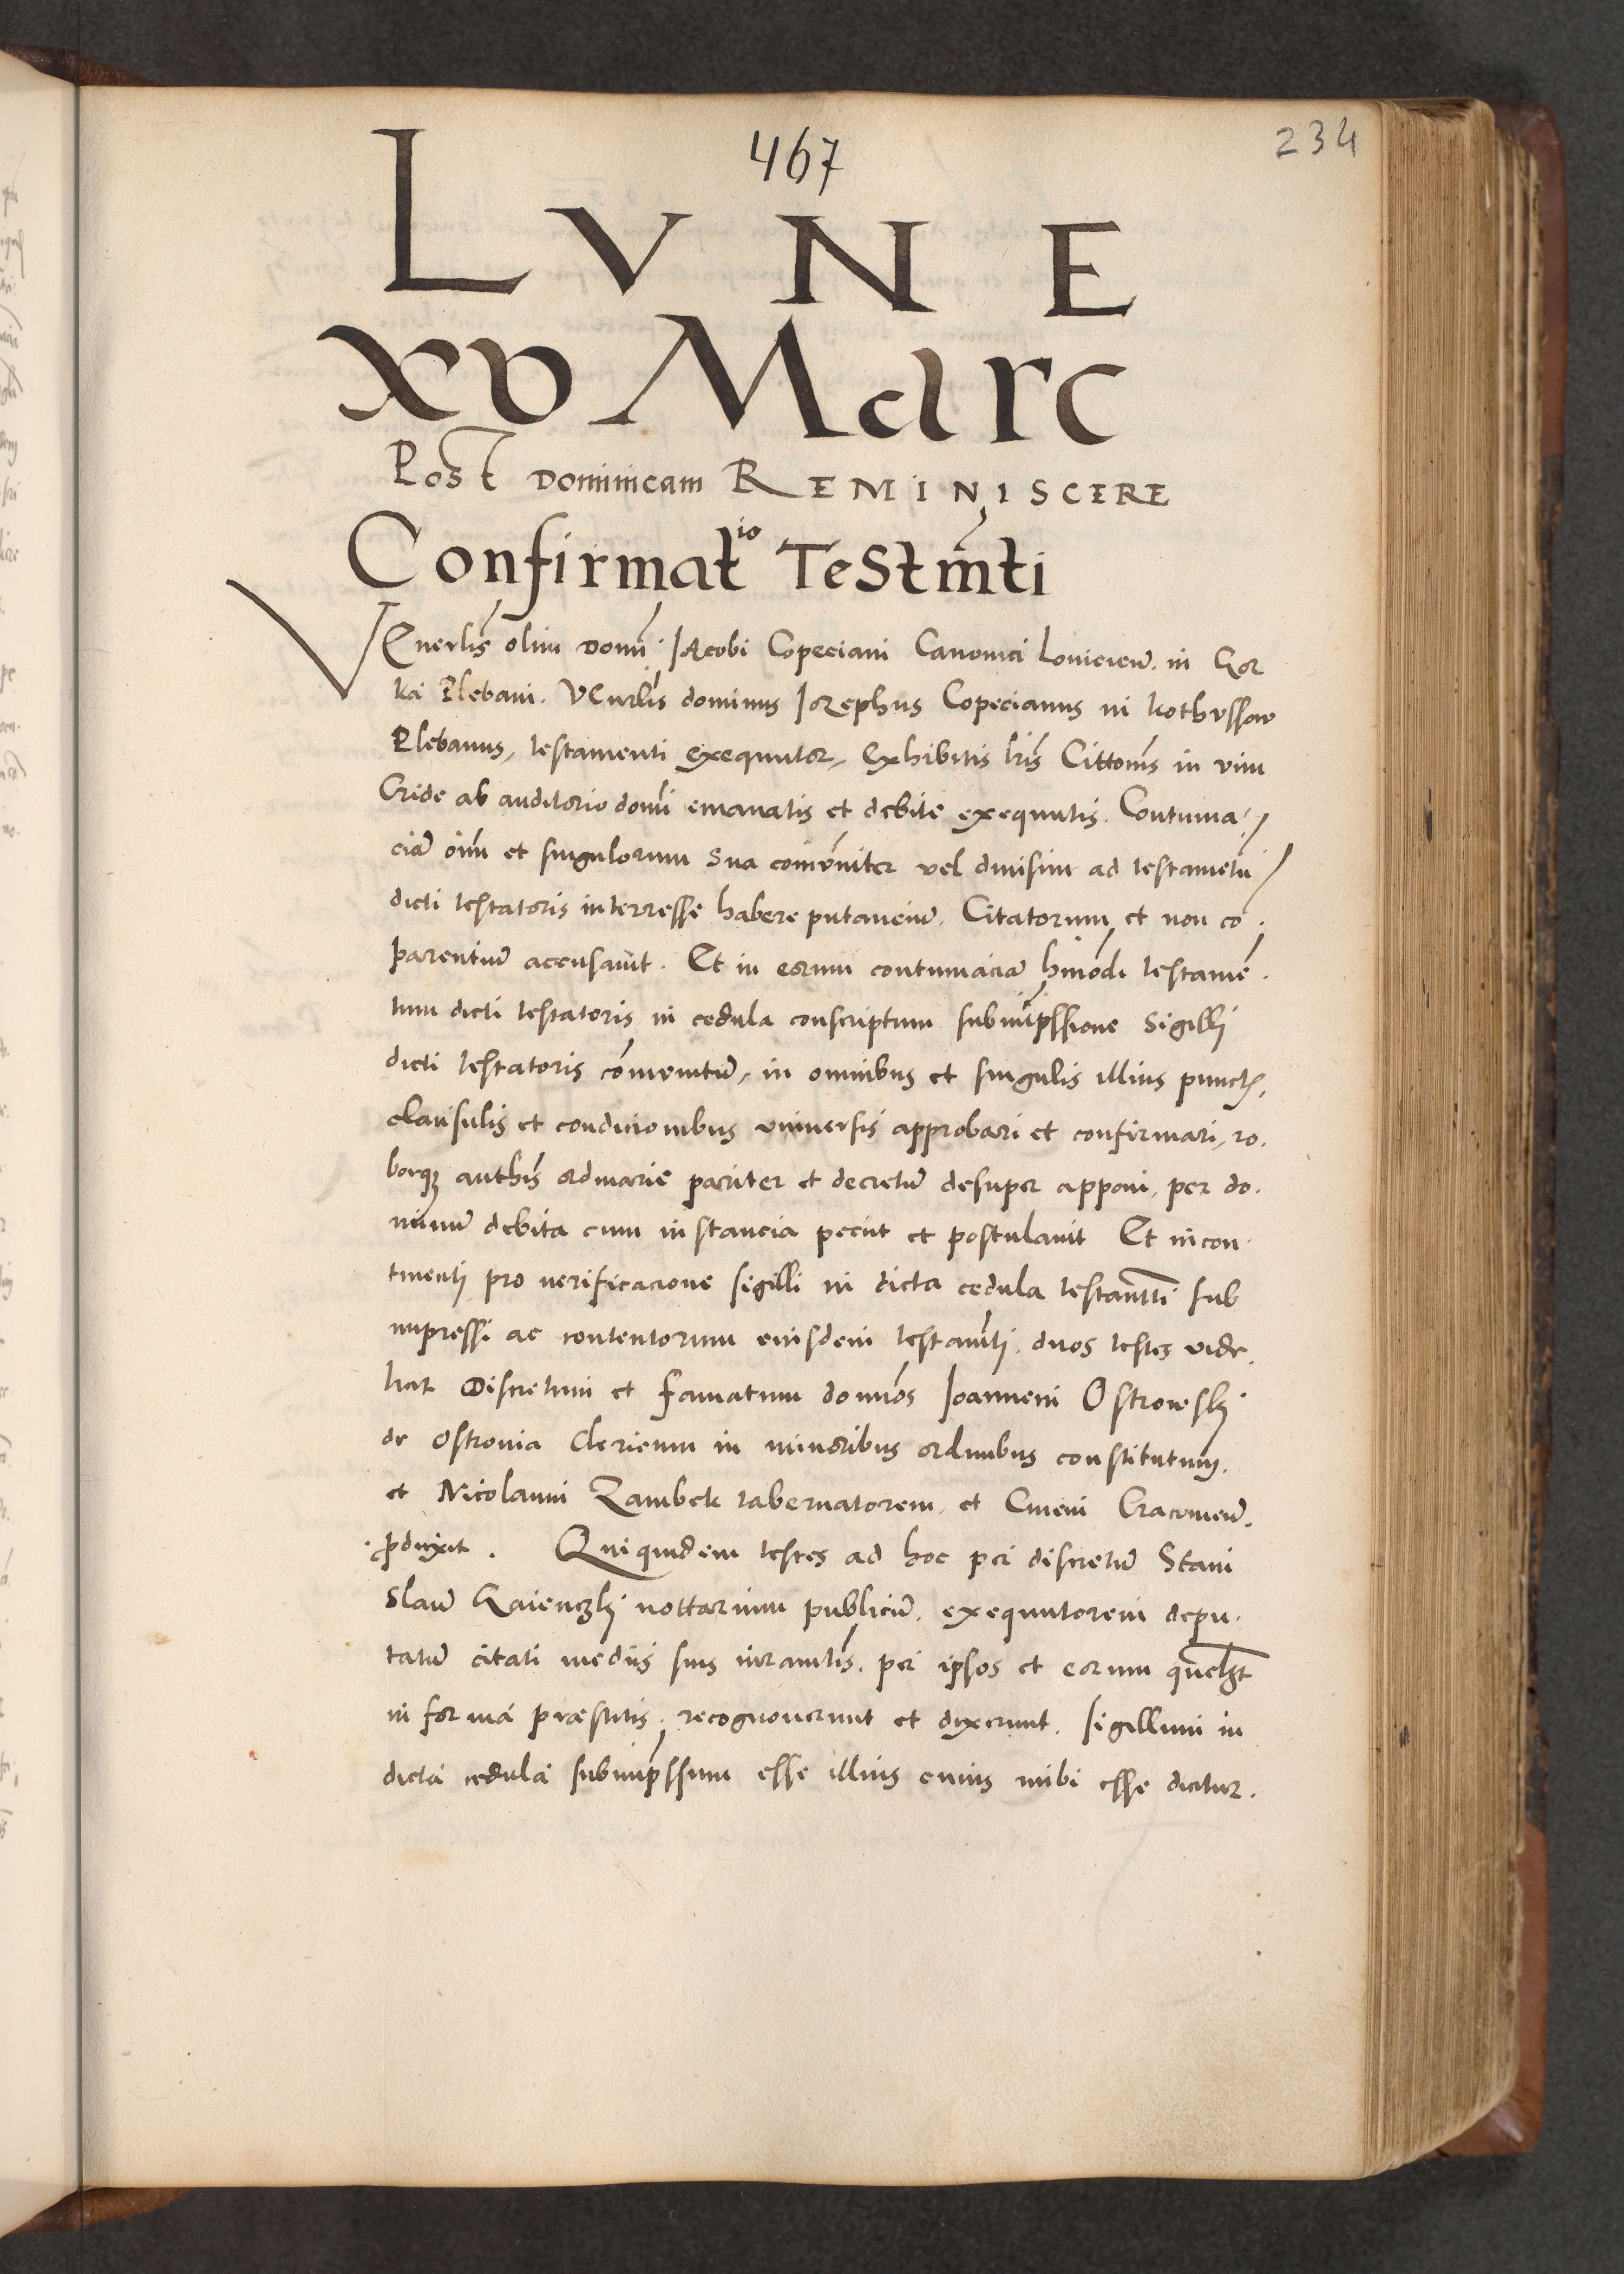 467
234
LVNE
XV Marc
Post Dominicam REMINISCERE
Confirmatio Testmti
VEnerlis olim Domi Iacobi Copeciani Canonici Lovicien. in Gor
ka Plebani. VEnrlis dominus Iozephus Copecianus in kothussow
Plebanus, testamenti exequutor, Exhibitis lris Cittonis in vim
Cride ab auditorio domi emanatis et debite exequutis. Contuma
ciā oim et singulorum sua comuniter vel divisim ad testametū
dicti testatoris interresse habere putanciū. Citatorum et non cō
parentiū accusavit. Et in eorum contumaciā hmōdi testamē
tum dicti testatoris in cedula conscriptum submipssione sigilli
dicti testatoris comunitū, in omnibus et singulis illius punctis,
clausulis et condicionibus universis approbari et confirmari, ro
borq authis ordinarie pariter et decretū desuper apponi, per do
minū debita cum instancia peciit et postulavit Et incon
tinenti pro verificacione sigilli in dicta cedula testamti sub
impressi ac contentorum eiusdem testamti. duos testes vide
licet Discretum et famatum dominos Ioannem Ostrowski
de Ostrovia Clericum in minoribus ordinibus constitutum.
et Nicolaum Zambek tabernatorem, et Civem Cracovien.
produxit. Qui quidem testes ad hoc per discretū Stani
slaū Gaienczki nottarium publicū. exequutorem depu
tatū citati mediis suis iuramtis. per ipsos et eorum quēlzt
in forma præstitis. recognoverunt et dixerunt. sigillum in
dicta cedula submipssum esse illius cuius mihi esse dicitur.